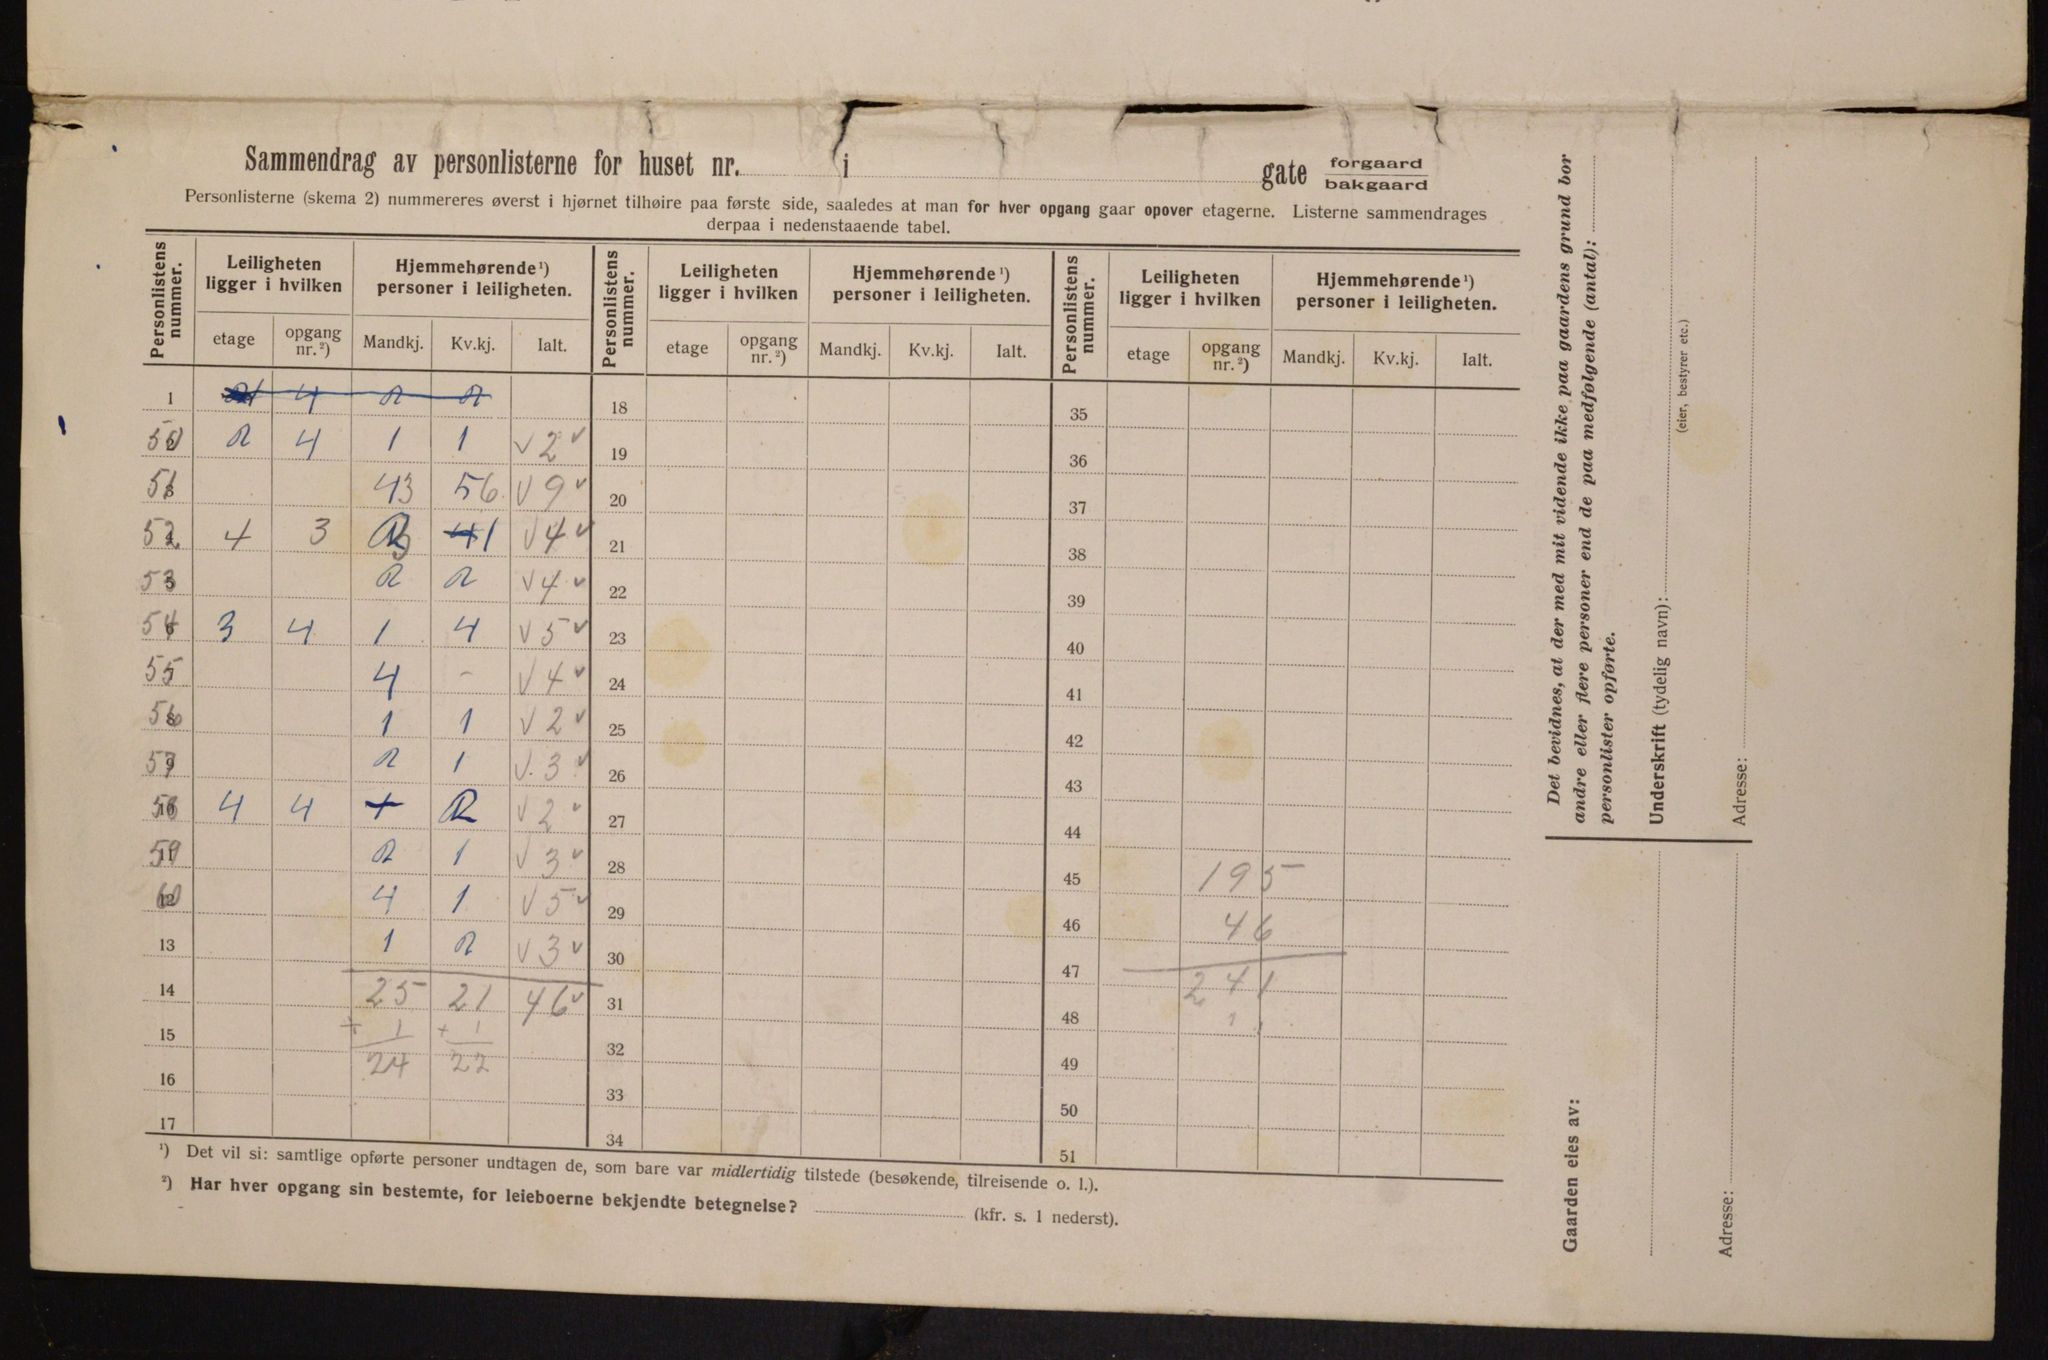 Sammendrag av personlisterne for huset nr. i gate forgaard bakgaard
Personlisterne (skema 2) nummereres øverst i hjørnet tilhøire paa første side, saaledes at man for hver opgang gaar opover etagerne. Listerne sammendrages
derpaa i nedenstaaende tabel.
Personlistens nummer. Leiligheten ligger i hvilken Hjemmehørende¹) personer i leiligheten. Personlistens nummer. Leiligheten ligger i hvilken Hjemmehørende¹) personer i leiligheten. Personlistens nummer. Leiligheten ligger i hvilken Hjemmehørende¹) personer i leiligheten.
etage opgang nr.²) Mandkj. Kv.kj. Ialt. etage opgang nr.²) Mandkj. Kv.kj. Ialt. etage opgang nr.²) Mandkj. Kv.kj. Ialt.
1 4 2 2 18 35
50 2 4 1 1 √ 2 ✓ 19 36
51 43 56 √ 9 ✓ 20 37
52 4 3 3 41 √ 4 ✓ 21 38
53 2 2 √ 4 ✓ 22 39
54 3 4 1 4 √ 5 ✓ 23 40
55 4 - √ 4 ✓ 24 41
56 1 1 √ 2 ✓ 25 42
57 2 1 √ 3 ✓ 26 43
58 4 4 + 2 √ 2 ✓ 27 44
59 2 1 √ 3 ✓ 28 45 195
60 4 1 √ 5 ✓ 29 46 46
13 1 2 √ 3 ✓ 30 47 241
14 25 21 46 ✓ 31 48
15 ÷ 1 + 1 32 49
16 24 22 33 50
17 34 51
¹) Det vil si: samtlige opførte personer undtagen de, som bare var midlertidig tilstede (besøkende, tilreisende o. l.).
²) Har hver opgang sin bestemte, for leieboerne bekjendte betegnelse? (kfr. s. 1 nederst).
Det bevidnes, at der med mit vidende ikke paa gaardens grund bor
andre eller flere personer end de paa medfølgende (antal):
personlister opførte.
Underskrift (tydelig navn):
(eier, bestyrer etc.)
Adresse:
Gaarden eies av:
Adresse: